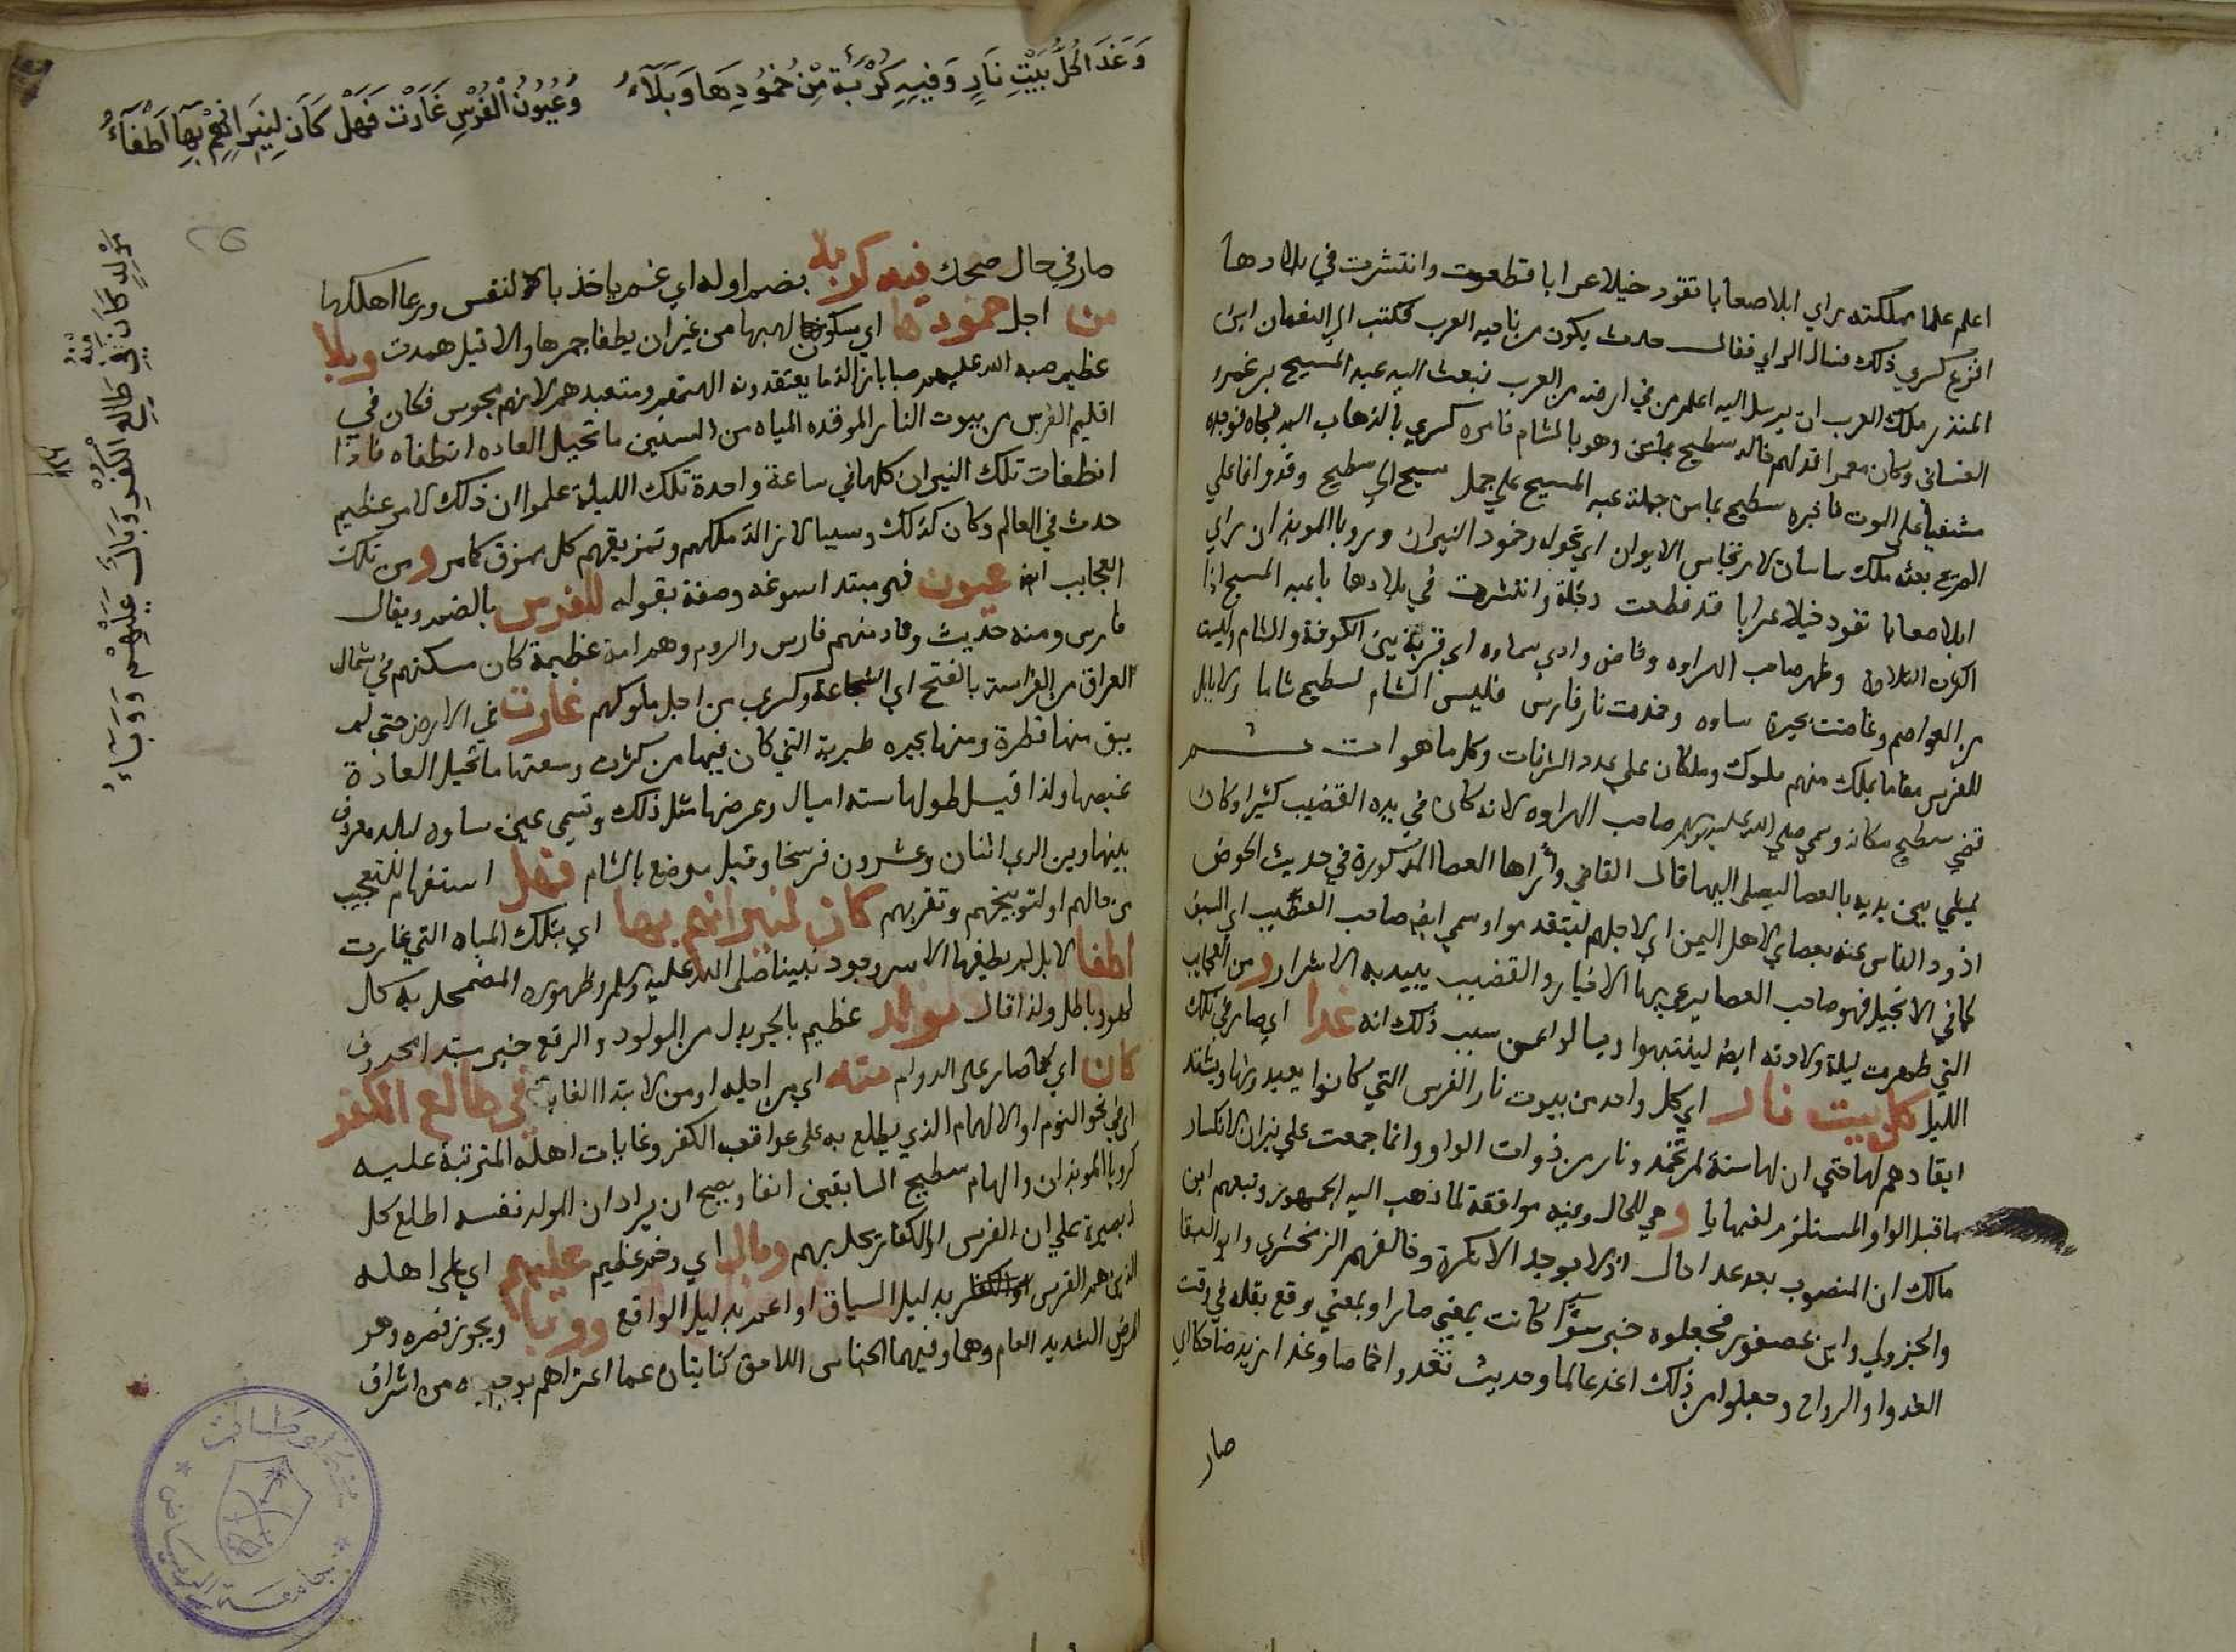 اعلم علما مملكته راي ابلا صعابا تقود خيلا عرابا قطعت وانتشرت في بلادها
افزع كسري ذلك فسال الراي فقال حدث يكون من ناحيه العرب فكتب الي النعمان ابن
المنذر ملك العرب ان يرسل اليه اعلم من في ارضه من العرب فبعث اليه عبد المسيح بن عمرو
الغساني وكان معمرا فدلهم خاله سطيح وهو بالشام فامره كسري بالذهاب اليه فجاه فوجده
مشفيا علي الموت فاخبره سطيح من جملة عبد المسيح علي جمل مسيح الي سطيح وقد وافا علي
الضريح بعثه ملك ساسان لارتجاس الايوان اي تحوله وخمود النيران ورويا الموبذان راي
ابلا صعابا تقود خيلا عرابا قد قطعت دجلة وانتشرت في بلادها يا عبد المسيح اذا
اكثرت التلاوة وظهر صاحب الهراوه وفاض وادي سماوه اي قرية بين الكوفة والشام وليست
من العواصم وغاضت بحيرة ساوه وخمدت نار فارس فليس الشام لسطيح شاما ولا بابل
للفرس مقاما يملك منهم ملوك وملكان علي عدد الشرفات وكل ما هو ات ات ثم
قضي سطيح مكانه وسمي صلي الله عليه وسلم صاحب الهراوه لانه كان في يده القضيب كثيرا وكان
يمشي بين يديه بالعصا ليصلي اليها قال القاضي واراها العصا المذكورة في حديث الحوض
اذود الناس عنه بعصاي لاهل اليمن اي لاجلهم ليتقدموا وسمي ايضا صاحب القضيب اي السيف
كما في الانجيل فهو صاحب العصا يرعي بها الاخيار والقضيب يبيد به الاشرار و من العجايب
التي ظهرت ليلة ولادته ايضا لينتبهوا ويسالوا عن سبب ذلك انه غدا اي صار في تلك
الليل كل بيت نار اي كل واحد من بيوت نار الفرس التي كانوا يعبدونها ويشتد
ايقادهم لها حتي ان لها سنة لم تخمد ونار من ذوات الواو وانما جمعت علي نيران لانكسار
ما قبل الواو المستلزم لقلبها يا و هي للحال وفيه موافقة لما ذهب اليه الجمهور وتبعهم ابن
مالك ان المنصوب بعد غدا حال اذ لا يوجد الا نكرة وخالفهم الزمخشري وابو البقا
والجزولي وابن عصفور فجعلوه خبر سوا كانت بمعني صار او بمعني وقع بفعله في وقت
الغدوا والرواح وجعلوا من ذلك اغد عالما وحديث تغدوا خماصا وغدا زيد ضاحكا اي
صار
وَغَدَا كُلُّ بَيْتِ نَارٍ وَفِيهِ كُرْبَةٌ مِّنْ خُمُودِهَا وَبَلَآءُ
وَعُيُونٌ لِلْفُرْسِ غَارَتْ فَهَلْ كَانَ لِنِيرَانِهِمْ بِهَا اَطْفَآءُ
مَوْلِدٌ كَانَ مِنْهُ فِي طَالِعِ الْكُفْرِ وَبَالٌ عَلَيْهِمْ وَوَبَاءُ
صار في حال ضحك فيه كربة بضم اوله اي غم ياخذ بالنفس وربما اهلكها
من اجل خمودها اي سكون لهبها من غير ان يطفا جمرها والا قيل همدت وبلا
عظيم صبه الله عليهم صبا بازالة ما يعتقدونه الهتهم ومتعبدهم لانهم مجوس فكان في
اقليم الفرس من بيوت النار الموقده المياه من السنين ما تحيل العاده انطفاه فاذا
انطفات تلك النيران كلها في ساعة واحدة تلك الليلة علموا ان ذلك لامر عظيم
حدث في العالم وكان كذلك وسببا لازالة ملكهم وتمزيقهم كل ممزق كامر و من تلك
العجايب ايضا عيون فهو مبتدا سوغه وصفه بقوله للفرس بالضم ويقال
فارس ومنه حديث وخادمنهم فارس والروم وهم امة عظيمة كان مسكنهم في شمال
العراق من الفراسة بالفتح اي الشجاعة وكسري من اجل ملوكهم غارت في الارض حتي لم
يبق منها قطرة ومنها بحيره طبرية التي كان فيها من كثرت وسعتها ما تحيل العادة
غيضها ولذا قيل طولها سته اميال وعرضها مثل ذلك وتسمي عين ساوه لبلد معروف
بينها وبين الري اثنان وعشرون فرسخا وقيل موضع بالشام فهل استفهام للتعجيب
من حالهم او لتوبيخهم وتقريعهم كان لنيرانهم بها اي بتلك المياه التي غارت
اطفا لا بل لم يطفيها الا سر وجود نبينا صلي الله عليه وسلم وظهوره المضمحل به كل
لهو وباطل ولذا قال مولد عظيم بالجر بدل من المولود والرفع خبر مبتدا محذوف
كان اي كما صار علي الدوام منه اي من اجله او من لابتدا الغاية في طالع الكفر
اي في نحو النوم او الالهام الذي يطلع به علي عواقب الكفر وغايات اهله المترتبة عليه
كرويا الموبذان والهام سطيح السابقين انفا ويصح ان يراد ان المولد نفسه اطلع كل
ذي بصيرة علي ان الفرس او الكفار يحل بهم وبال اي وخم عظيم عليهم اي علي اهله
الذين هم الفرس بدليل السياق او اعم بدليل الواقع ووبا ويجوز قصره وهو
المرض الشديد العام وهما وفيهما الجناس اللاحق كنايتان عما اعتراهم بوجوده من اشراف
جامعة الرياض